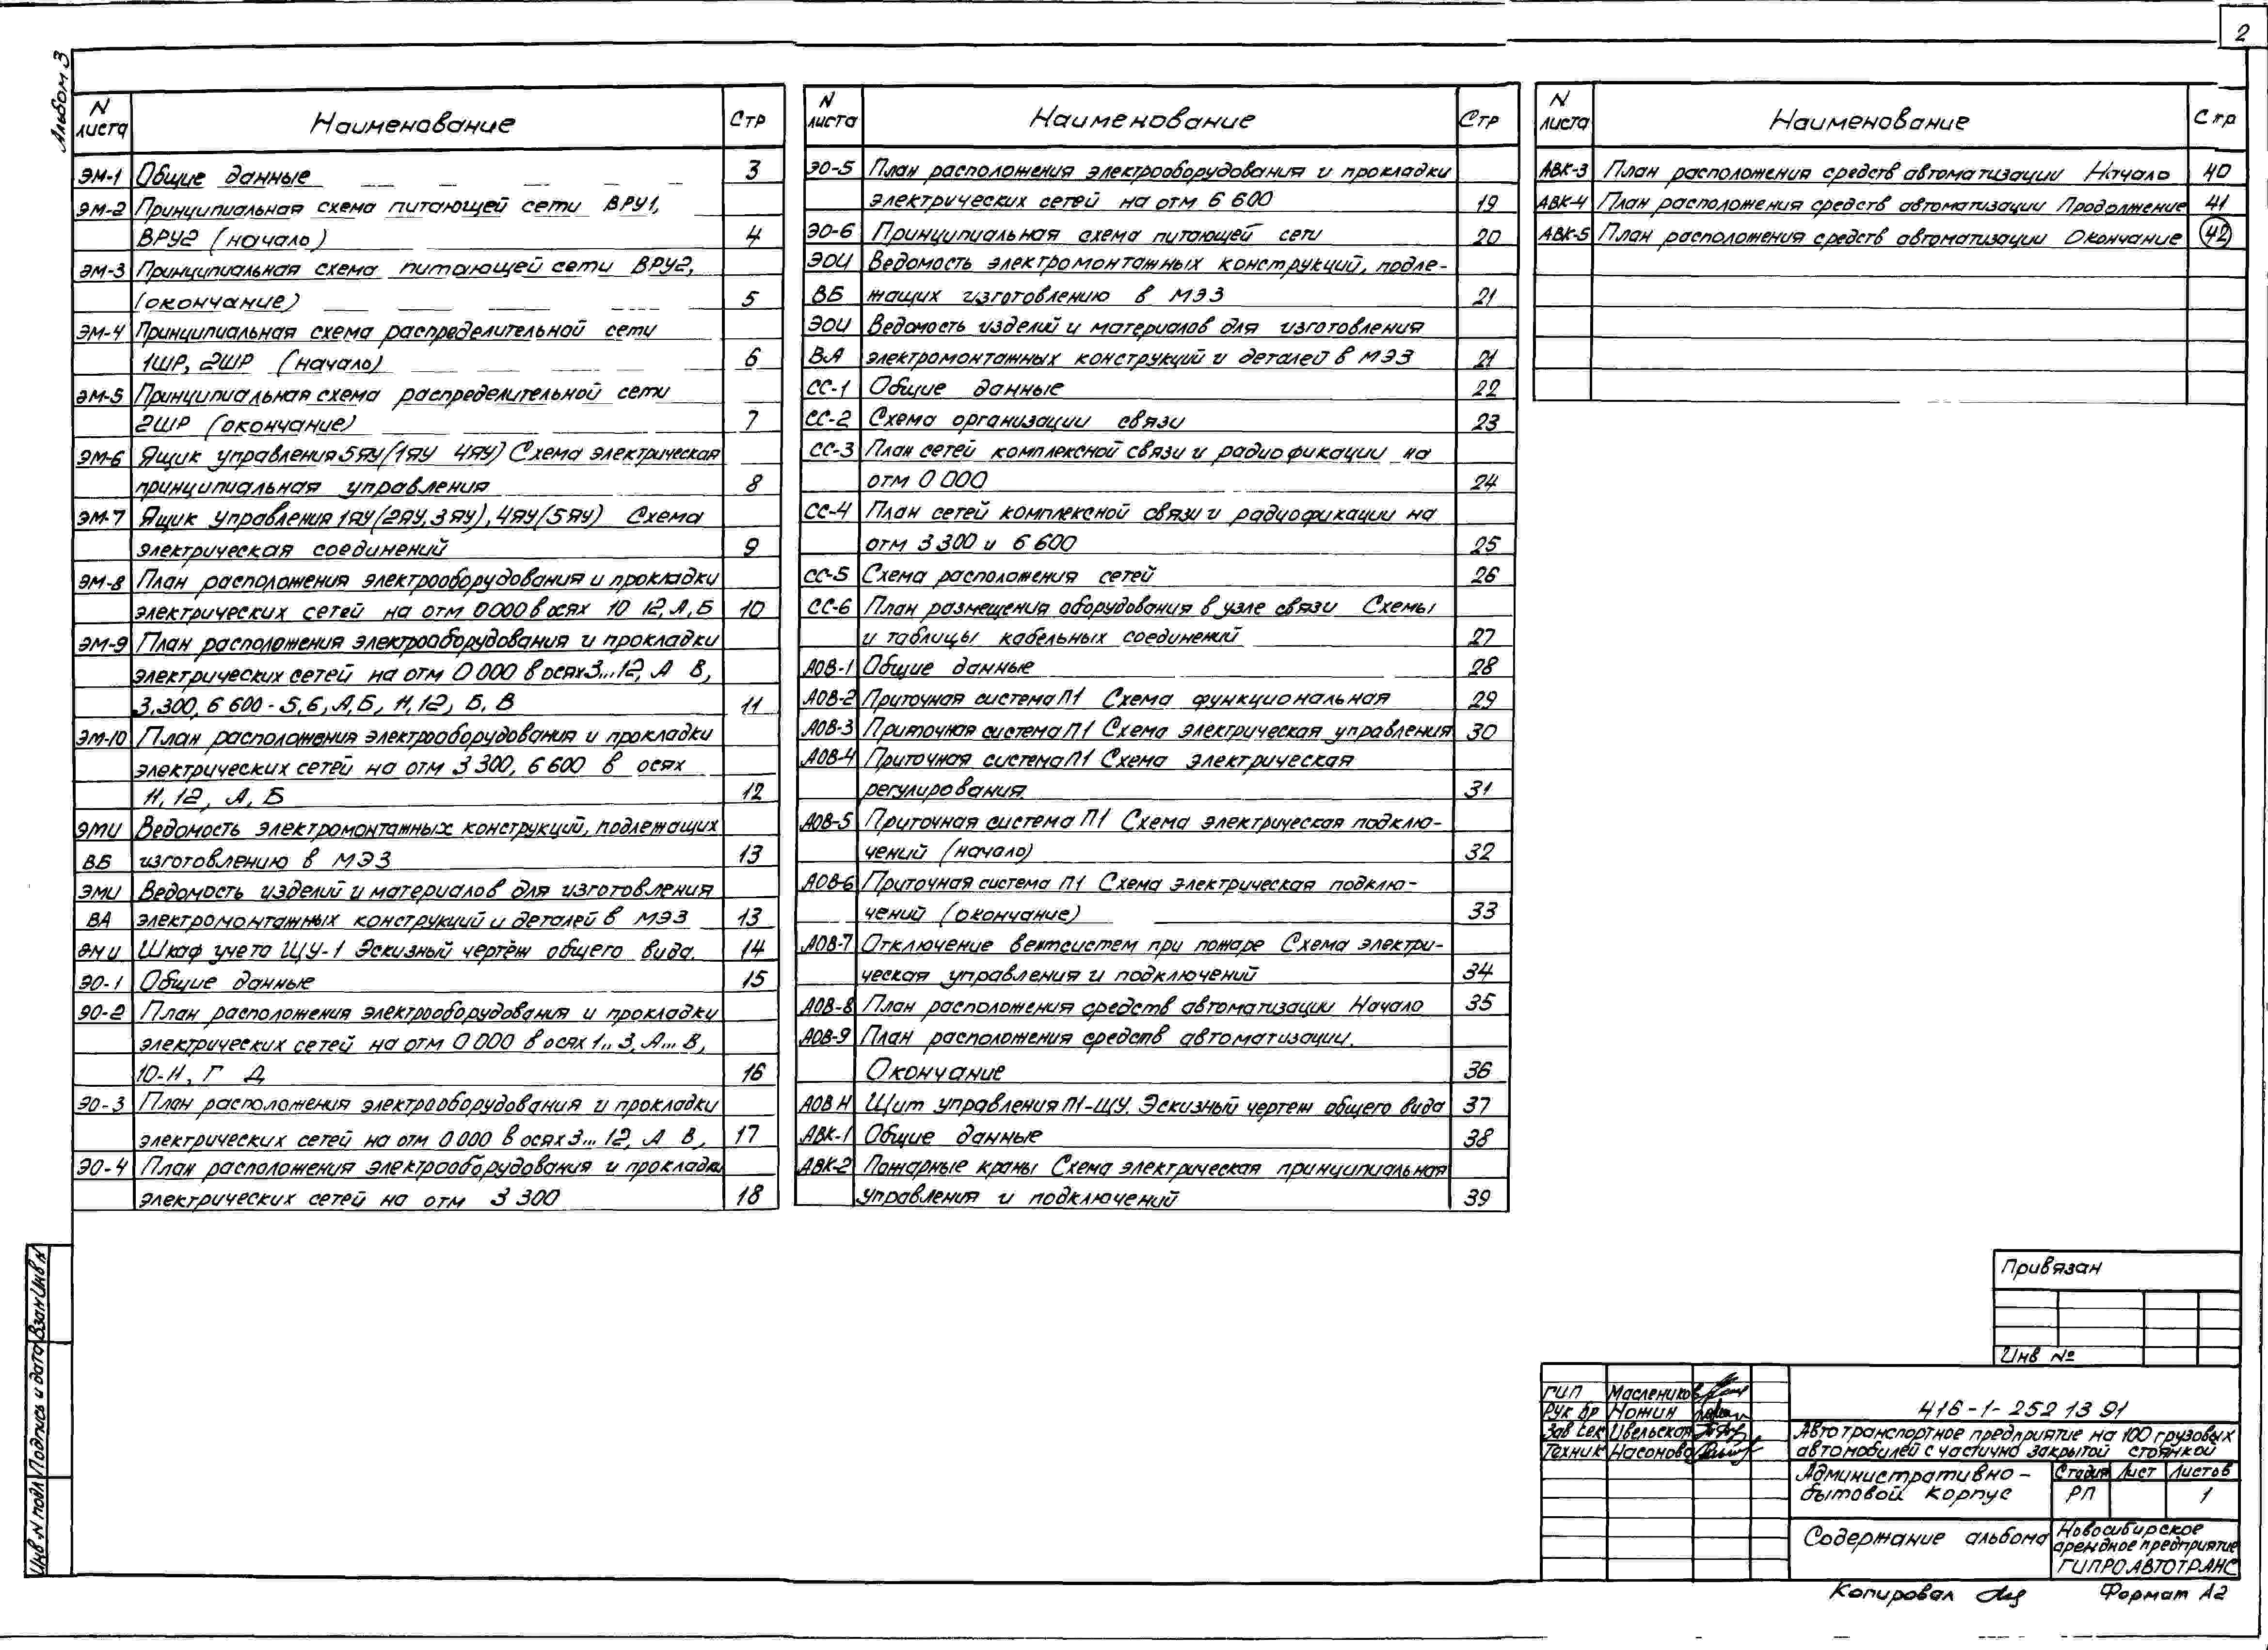 2
Альбом 3
N листа Наименование Стр
ЭМ-1 Общие данные 3
ЭМ-2 Принципиальная схема питающей сети ВРУ1,
ВРУ2 (начало) 4
ЭМ-3 Принципиальная схема питающей сети ВРУ2,
(окончание) 5
ЭМ-4 Принципиальная схема распределительной сети
1ШР, 2ШР (начало) 6
ЭМ-5 Принципиальная схема распределительной сети
2ШР (окончание) 7
ЭМ-6 Ящик управления 5ЯУ(1ЯУ 4ЯУ) Схема электрическая
принципиальная управления 8
ЭМ-7 Ящик управления 1ЯУ(2ЯУ, 3ЯУ), 4ЯУ(5ЯУ) Схема
электрическая соединений 9
ЭМ-8 План расположения электрооборудования и прокладки
электрических сетей на отм 0 000 в осях 10 12, А, Б 10
ЭМ-9 План расположения электрооборудования и прокладки
электрических сетей на отм 0 000 в осях 3...12, А В,
3.300, 6 600 - 5,6, А,Б, 11,12, Б, В 11
ЭМ-10 План расположения электрооборудования и прокладки
электрических сетей на отм 3 300, 6 600 в осях
11, 12, А, Б 12
ЭМИ Ведомость электромонтажных конструкций, подлежащих
ВБ изготовлению в МЭЗ 13
ЭМИ Ведомость изделий и материалов для изготовления
ВА электромонтажных конструкций и деталей в МЭЗ 13
ЭМИ Шкаф учета ЩУ-1 Эскизный чертёж общего вида. 14
ЭО-1 Общие данные 15
ЭО-2 План расположения электрооборудования и прокладки
электрических сетей на отм 0 000 в осях 1..3, А...В,
10-11, Г Д 16
ЭО-3 План расположения электрооборудования и прокладки
электрических сетей на отм 0 000 в осях 3...12, А В, 17
ЭО-4 План расположения электрооборудования и прокладки
электрических сетей на отм 3 300 18
N листа Наименование Стр
ЭО-5 План расположения электрооборудования и прокладки
электрических сетей на отм 6 600 19
ЭО-6 Принципиальная схема питающей сети 20
ЭОИ Ведомость электромонтажных конструкций, подле-
ВБ жащих изготовлению в МЭЗ 21
ЭОИ Ведомость изделий и материалов для изготовления
ВА электромонтажных конструкций и деталей в МЭЗ 21
СС-1 Общие данные 22
СС-2 Схема организации связи 23
СС-3 План сетей комплексной связи и радиофикации на
отм 0 000 24
СС-4 План сетей комплексной связи и радиофикации на
отм 3 300 и 6 600 25
СС-5 Схема расположения сетей 26
СС-6 План размещения оборудования в узле связи Схемы
и таблицы кабельных соединений 27
АОВ-1 Общие данные 28
АОВ-2 Приточная система П1 Схема функциональная 29
АОВ-3 Приточная система П1 Схема электрическая управления 30
АОВ-4 Приточная система П1 Схема электрическая
регулирования. 31
АОВ-5 Приточная система П1 Схема электрическая подклю-
чений (начало) 32
АОВ-6 Приточная система П1 Схема электрическая подклю-
чений (окончание) 33
АОВ-7 Отключение вентсистем при пожаре Схема электри-
ческая управления и подключений 34
АОВ-8 План расположения средств автоматизации Начало 35
АОВ-9 План расположения средств автоматизации.
Окончание 36
АОВ Н Щит управления П1-ЩУ. Эскизный чертеж общего вида 37
АВК-1 Общие данные 38
АВК-2 Пожарные краны Схема электрическая принципиальная
управления и подключений 39
N листа Наименование Стр
АВК-3 План расположения средств автоматизации Начало 40
АВК-4 План расположения средств автоматизации Продолжение 41
АВК-5 План расположения средств автоматизации Окончание 42
Привязан
Инв №
ГИП Маслеников
Рук бр Ножин
Зав сек Ивельская
Техник Насонова
416-1-252 13 91
Автотранспортное предприятие на 100 грузовых
автомобилей с частично закрытой стоянкой
Административно-
бытовой корпус
Стадия Лист Листов
РП 1
Содержание альбома
Новосибирское
арендное предприятие
ГИПРОАВТОТРАНС
Копировал
Формат А2
Инв N подл Подпись и дата Взам Инв N